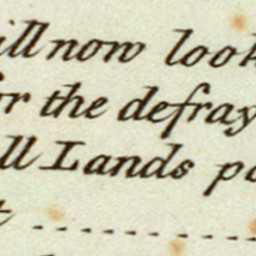 ill now look
for the defray
ll Lands pa
t